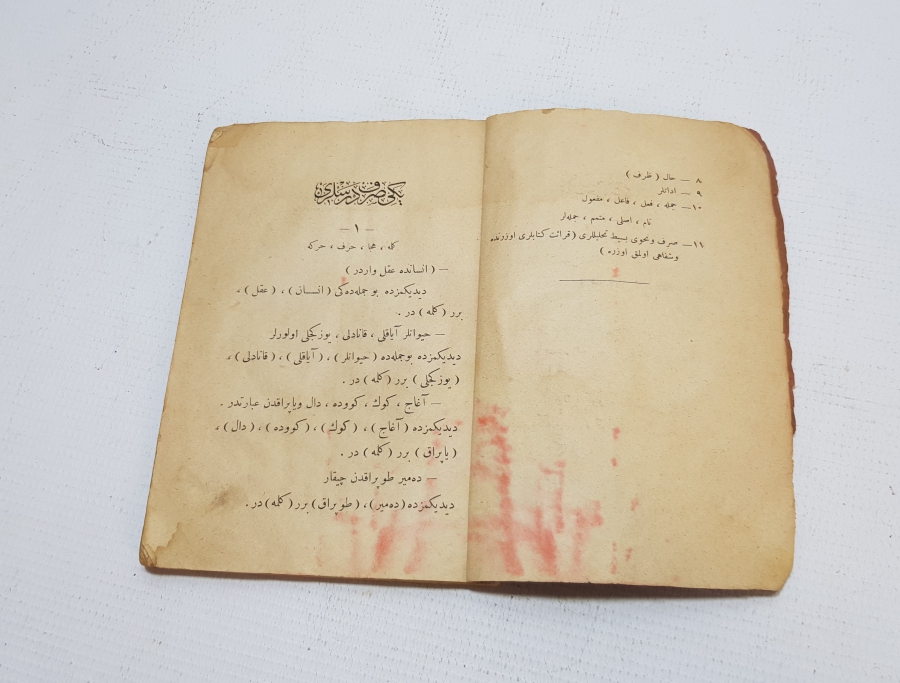 ٨ — حال ( ظرف )
٩ — اداتلر
١٠— جمله ، فعل ، فاعل ، مفعول
تام ، اصلی ، متمم ، جمله‌لر
١١— صرف ونحوی بسیط تحلیللری ( قرائت کتابلری اوزرنده
وشفاهی اولمق اوزره )
یکی صرف درسلری
— ١ —
کله ، هجا ، حرف ، حرکه
— ( انسانده عقل واردر )
دیدیکمزده بو جمله‌ده‌کی ( انسان ) ، ( عقل ) ،
برر ( کله ) در .
— حیوانلر آیاقلی ، قانادلی ، یوزکجلی اولورلر
دیدیکمزده بوجمله‌ده ( حیوانلر ) ، ( آیاقلی ) ، ( قانادلی ) ،
( یوزکجلی ) برر ( کله ) در .
— آغاج ، کوك ، کووده ، دال ویاپراقدن عبارتدر .
دیدیکمزده ( آغاج ) ، ( کوك ) ، ( کووده ) ، ( دال ) ،
( یاپراق ) برر ( کله ) در .
— ده‌میر طوپراقدن چیقار
دیدیکمزده ( ده‌میر ) ، ( طوپراق ) برر ( کله ) در .